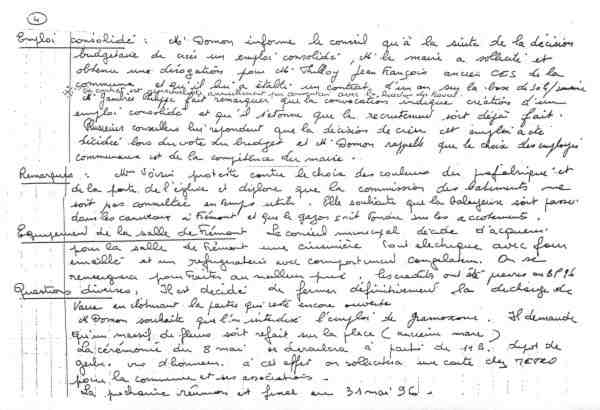 4
Emploi consolidé : Mr Domon informe le conseil qu'à la suite de la décision
budgétaire de créer un emploi consolidé, Mr le maire a sollicité et
obtenu une dérogation pour Mr Jean François ancien CES de la
commune et qu'il lui a établi un contrat d'un an sur la base de 30h/semaine
ce contrat est renouvelable annuellement
Mr fait remarquer que la convocation indique création d'un
emploi consolidé et qu'il s'étonne que le recrutement soit déjà fait.
Plusieurs conseillers lui répondent que la décision de créer cet emploi a été
décidée lors du vote du budget et Mr Domon rappelle que le choix des employés
communaux est de la compétence du maire.
Remarques : Mme Voisin proteste contre le choix des couleurs du préfabriqué et
de la porte de l'église et déplore que la commission des bâtiments ne
soit pas consultée en temps utile. Elle souhaite que la balayeuse soit passée
dans les caniveaux à Frémont et que le gazon soit tondu sur les accotements.
Equipement de la salle de Frémont Le conseil municipal décide d'acquérir
pour la salle de Frémont une cuisinière tout électrique avec four
émaillé et un réfrigérateur avec compartiment congélateur. On se
renseignera pour traiter au meilleur prix, les crédits ont été prévus au BP 96
Questions diverses, Il est décidé de fermer définitivement la décharge de
Vaux en clôturant la partie qui reste encore ouverte
Mr Domon souhaite que l'on interdise l'emploi de gramoxone. Il demande
qu'un massif de fleurs soit refait sur la place (ancienne mare)
La cérémonie du 8 mai se déroulera à partir de 11 h, dépôt de
gerbe, vin d'honneur, à cet effet on sollicitera une carte chez METRO
pour la commune et ses associations.
La prochaine réunion est fixée au 31 mai 96.